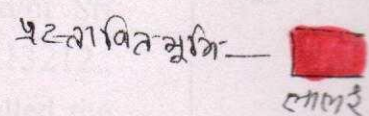 प्रस्तावित भूमि —
लाल रं